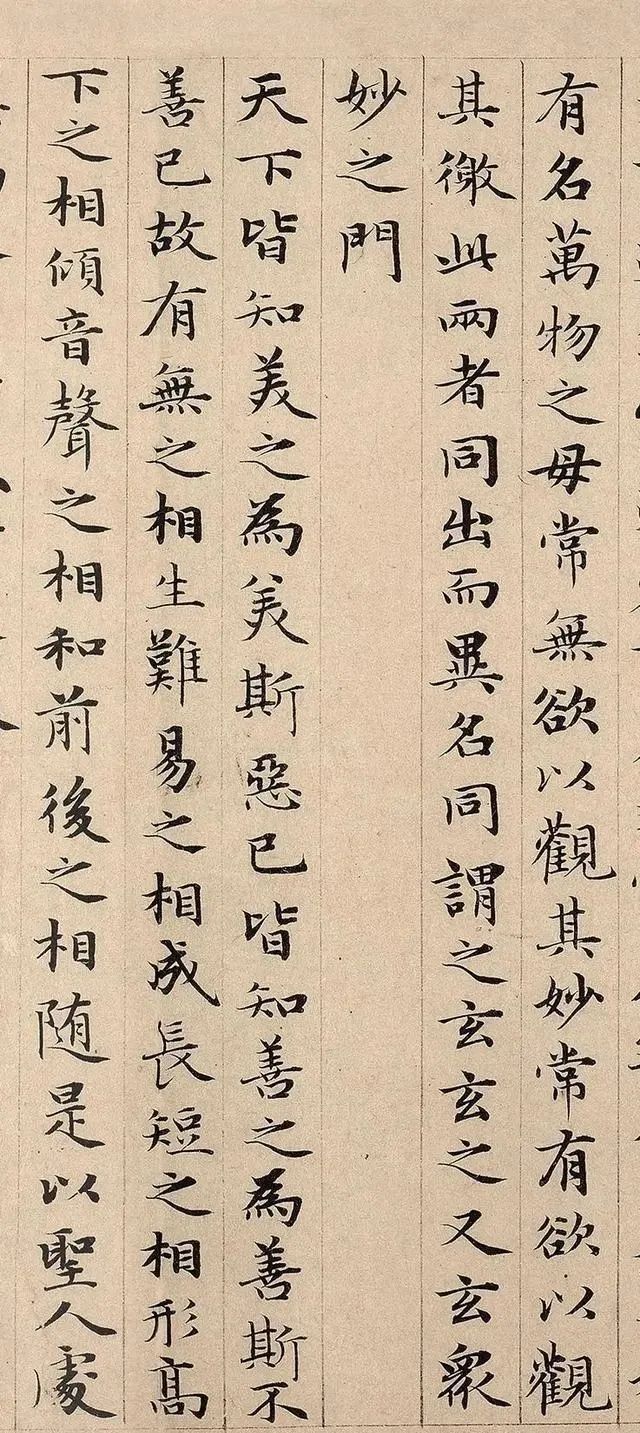 有名萬物之母常無欲以觀其妙常有欲以觀
其徼此兩者同出而異名同謂之玄玄之又玄衆
妙之門
天下皆知美之為美斯惡已皆知善之為善斯不
善已故有無之相生難易之相成長短之相形高
下之相傾音聲之相和前後之相随是以聖人處